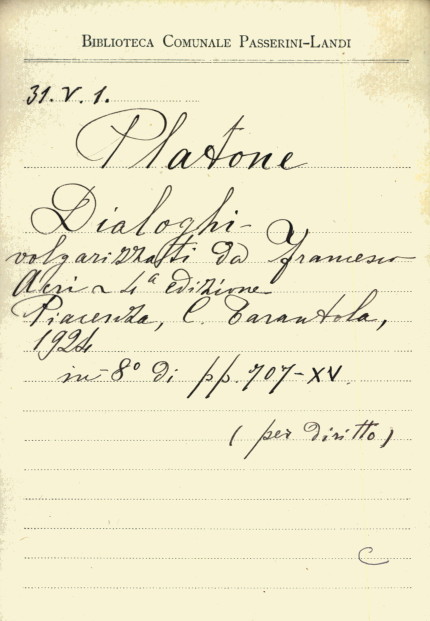 BIBLIOTECA COMUNALE PASSERINI-LANDI
31. V. 1.
Platone
Dialoghi -
volgarizzatti da Francesco
Acri ~ 4ª edizione
Piacenza, C. Tarantola,
1924
in-8º di pp. 707-XV.
( per diritto )
C